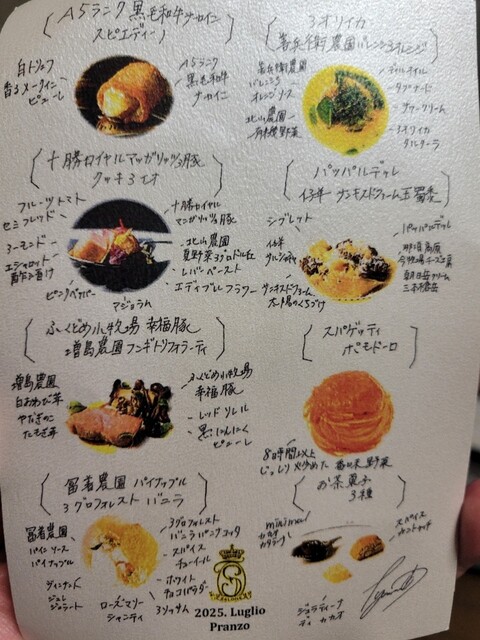 A5ランク 黒毛和牛 サーロイン
スピエディーノ
白トリュフ
香るメークイン
ピューレ
A5ランク
黒毛和牛
サーロイン
アオリイカ
善兵衛農園バレンシアオレンジ
善兵衛農園
バレンシア
オレンジソース
北山農園
有機野菜
タプナード
サワークリーム
アオリイカ
タルターラ
十勝ロイヤルマンガリッツァ豚
クッキアイオ
フルーツトマト
セミフレッド
アーモンド
エシャロット
ピンクペッパー
マジョラム
十勝ロイヤル
マンガリッツァ豚
北山農園
夏野菜アグロドルチェ
レバーペースト
エディブルフラワー
パッパルデッレ
仔羊 サンキスドファーム玉蜀黍
シブレット
仔羊
サンキスドファーム
太陽のくちづけ
パッパルデッレ
ふくどめ小牧場 幸福豚
増島農園フンギトリフォラーティ
増島農園
白おおひら茸
やなぎのこ
たもぎ茸
ふくどめ小牧場
幸福豚
レッドソレル
黒にんにく
ピューレ
スパゲッティ
ポモドーロ
8時間以上
じっくり火炒めた 香味野菜
冨着農園 パイナップル
アグロフォレスト バニラ
冨着農園
パインソース
パイナップル
ジュレ
ジェラート
ローズマリー
シャンティ
アグロフォレスト
バニラパンナコッタ
スパイス
チュイール
ホワイト
チョコパウダー
アリッサム
お茶菓子
3種
minimal
カカオ
カタラーナ
スパイス
カントゥチ
ジェラティーナ
ディ カカオ
2025. Luglio
Pranzo